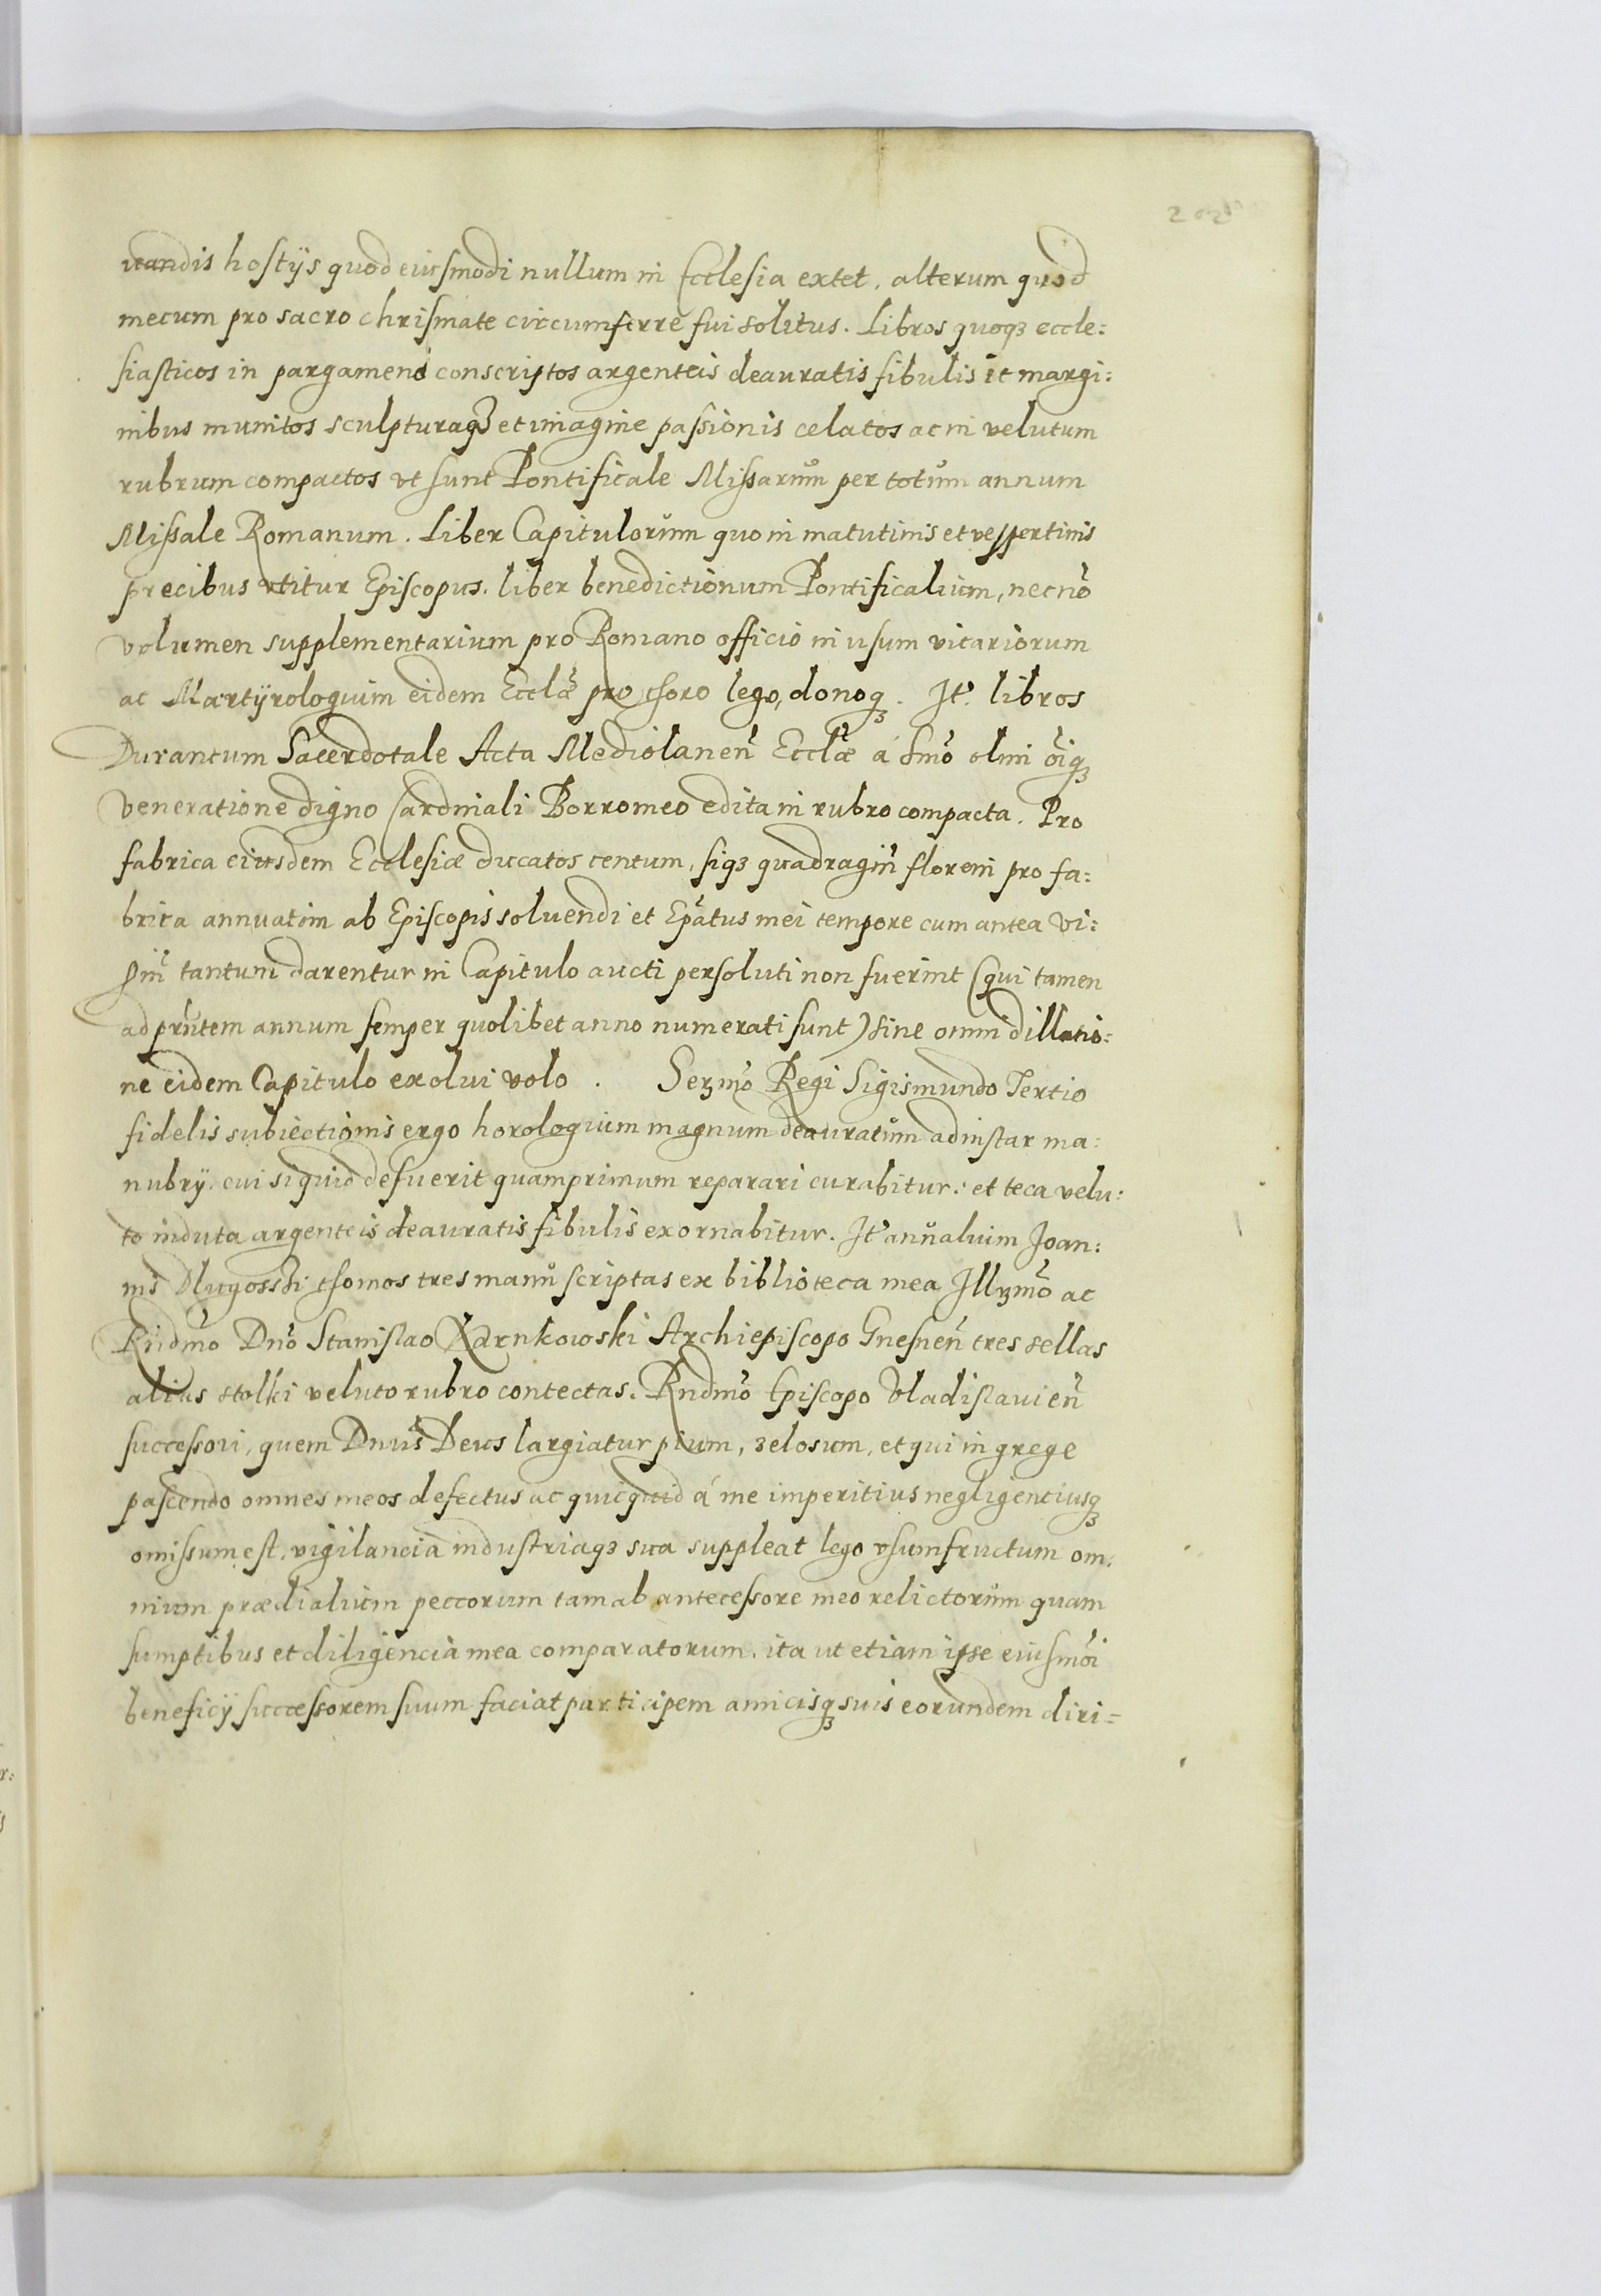 uandis hostijs quod eiusmodi nullum in Ecclesia extet, alterum quod
mecum pro sacro chrismate circumferre fui solitus. Libros quoqꝫ eccle:
siasticos in pargameno conscriptos argenteis deauratis fibulis et margi:
nibus munitos sculpturaqꝫ et imagine passionis celatos ac in velutum
rubrum compactos vt sunt Pontificale Missarum per totum annum
Missale Romanum. Liber Capitulorum quo in matutinis et vespertinis
precibus vtitur Episcopus. liber benedictionum Pontificalium, necnō
volumen supplementarium pro Romano officio in usum vicariorum
ac Martÿrologium eidem Ecclāe pro thsoro lego, donoqꝫ. Jt. libros
Durantum Sacerdotale Acta Mediolanen̄ Ecclāe á Smō olim ōiqꝫ
veneratione digno Cardinali Borromeo edita in rubro compacta. Pro
fabrica eiusdem Ecclesiæ ducatos centum, siqꝫ quadragin̄ floreni pro fa:
brica annuatim ab Episcopis soluendi et Ep̄atus mei tempore cum antea vi:
gin̄ tantum darentur in Capitulo aucti persoluti non fuerint (qui tamen
ad prn̄tem annum semper quolibet anno numerati sunt) sine omni dillatio:
ne eidem Capitulo exolui volo. Serꝫmō Regi Sigismundo Tertio
fidelis subiectionis ergo horologium magnum deauratum ad instar ma:
nubrÿ. cui siquid defuerit quamprimum reparari curabitur: et teca velu:
to induta argenteis deauratis fibulis exornabitur. Jt annalium Joan:
nis Dlugosski thomos tres manu scriptas ex biblioteca mea Jllꝫmō ac
Rn̄dmo Dnō Stanislao Karnkowski Archiepiscopo Gnesnen̄ tres sellas
alias stolki veluto rubro contectas. Rndmō Episcopo Vladislauien̄
successori, quem Dnūs Deus largiatur pium, zelosum, et qui in grege
pascendo omnes meos defectus ac quicquid á me imperitius negligenciusqꝫ
omissum est, vigilancia industriaqꝫ sua suppleat lego vsumfructum om:
nium prædialium peccorum tam ab antecessore meo relictorum quam
sumptibus et diligencia mea comparatorum, ita ut etiam ipse eiusmōi
beneficÿ successorem suum faciat participem amicisqꝫ suis eorundem diri=